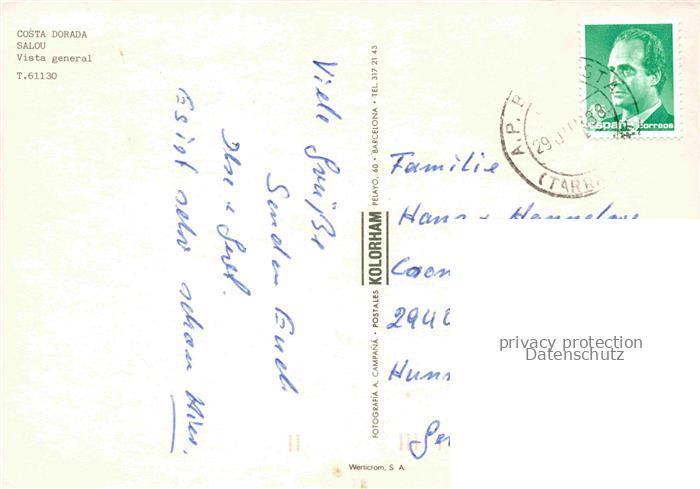 COSTA DORADA
SALOU
Vista general
T.61130
Viele Grüße
Senden Euch
Ilse &
Es ist sehr schön hier.
FOTOGRAFIA A. CAMPAÑA • POSTALES KOLORHAM PELAYO, 60 • BARCELONA • TEL. 317 21 43
Werticrom, S. A.
España correos
A.P. B
29 JUN 88
(TARR
Familie
Hans + Hannelore
2940
privacy protection
Datenschutz